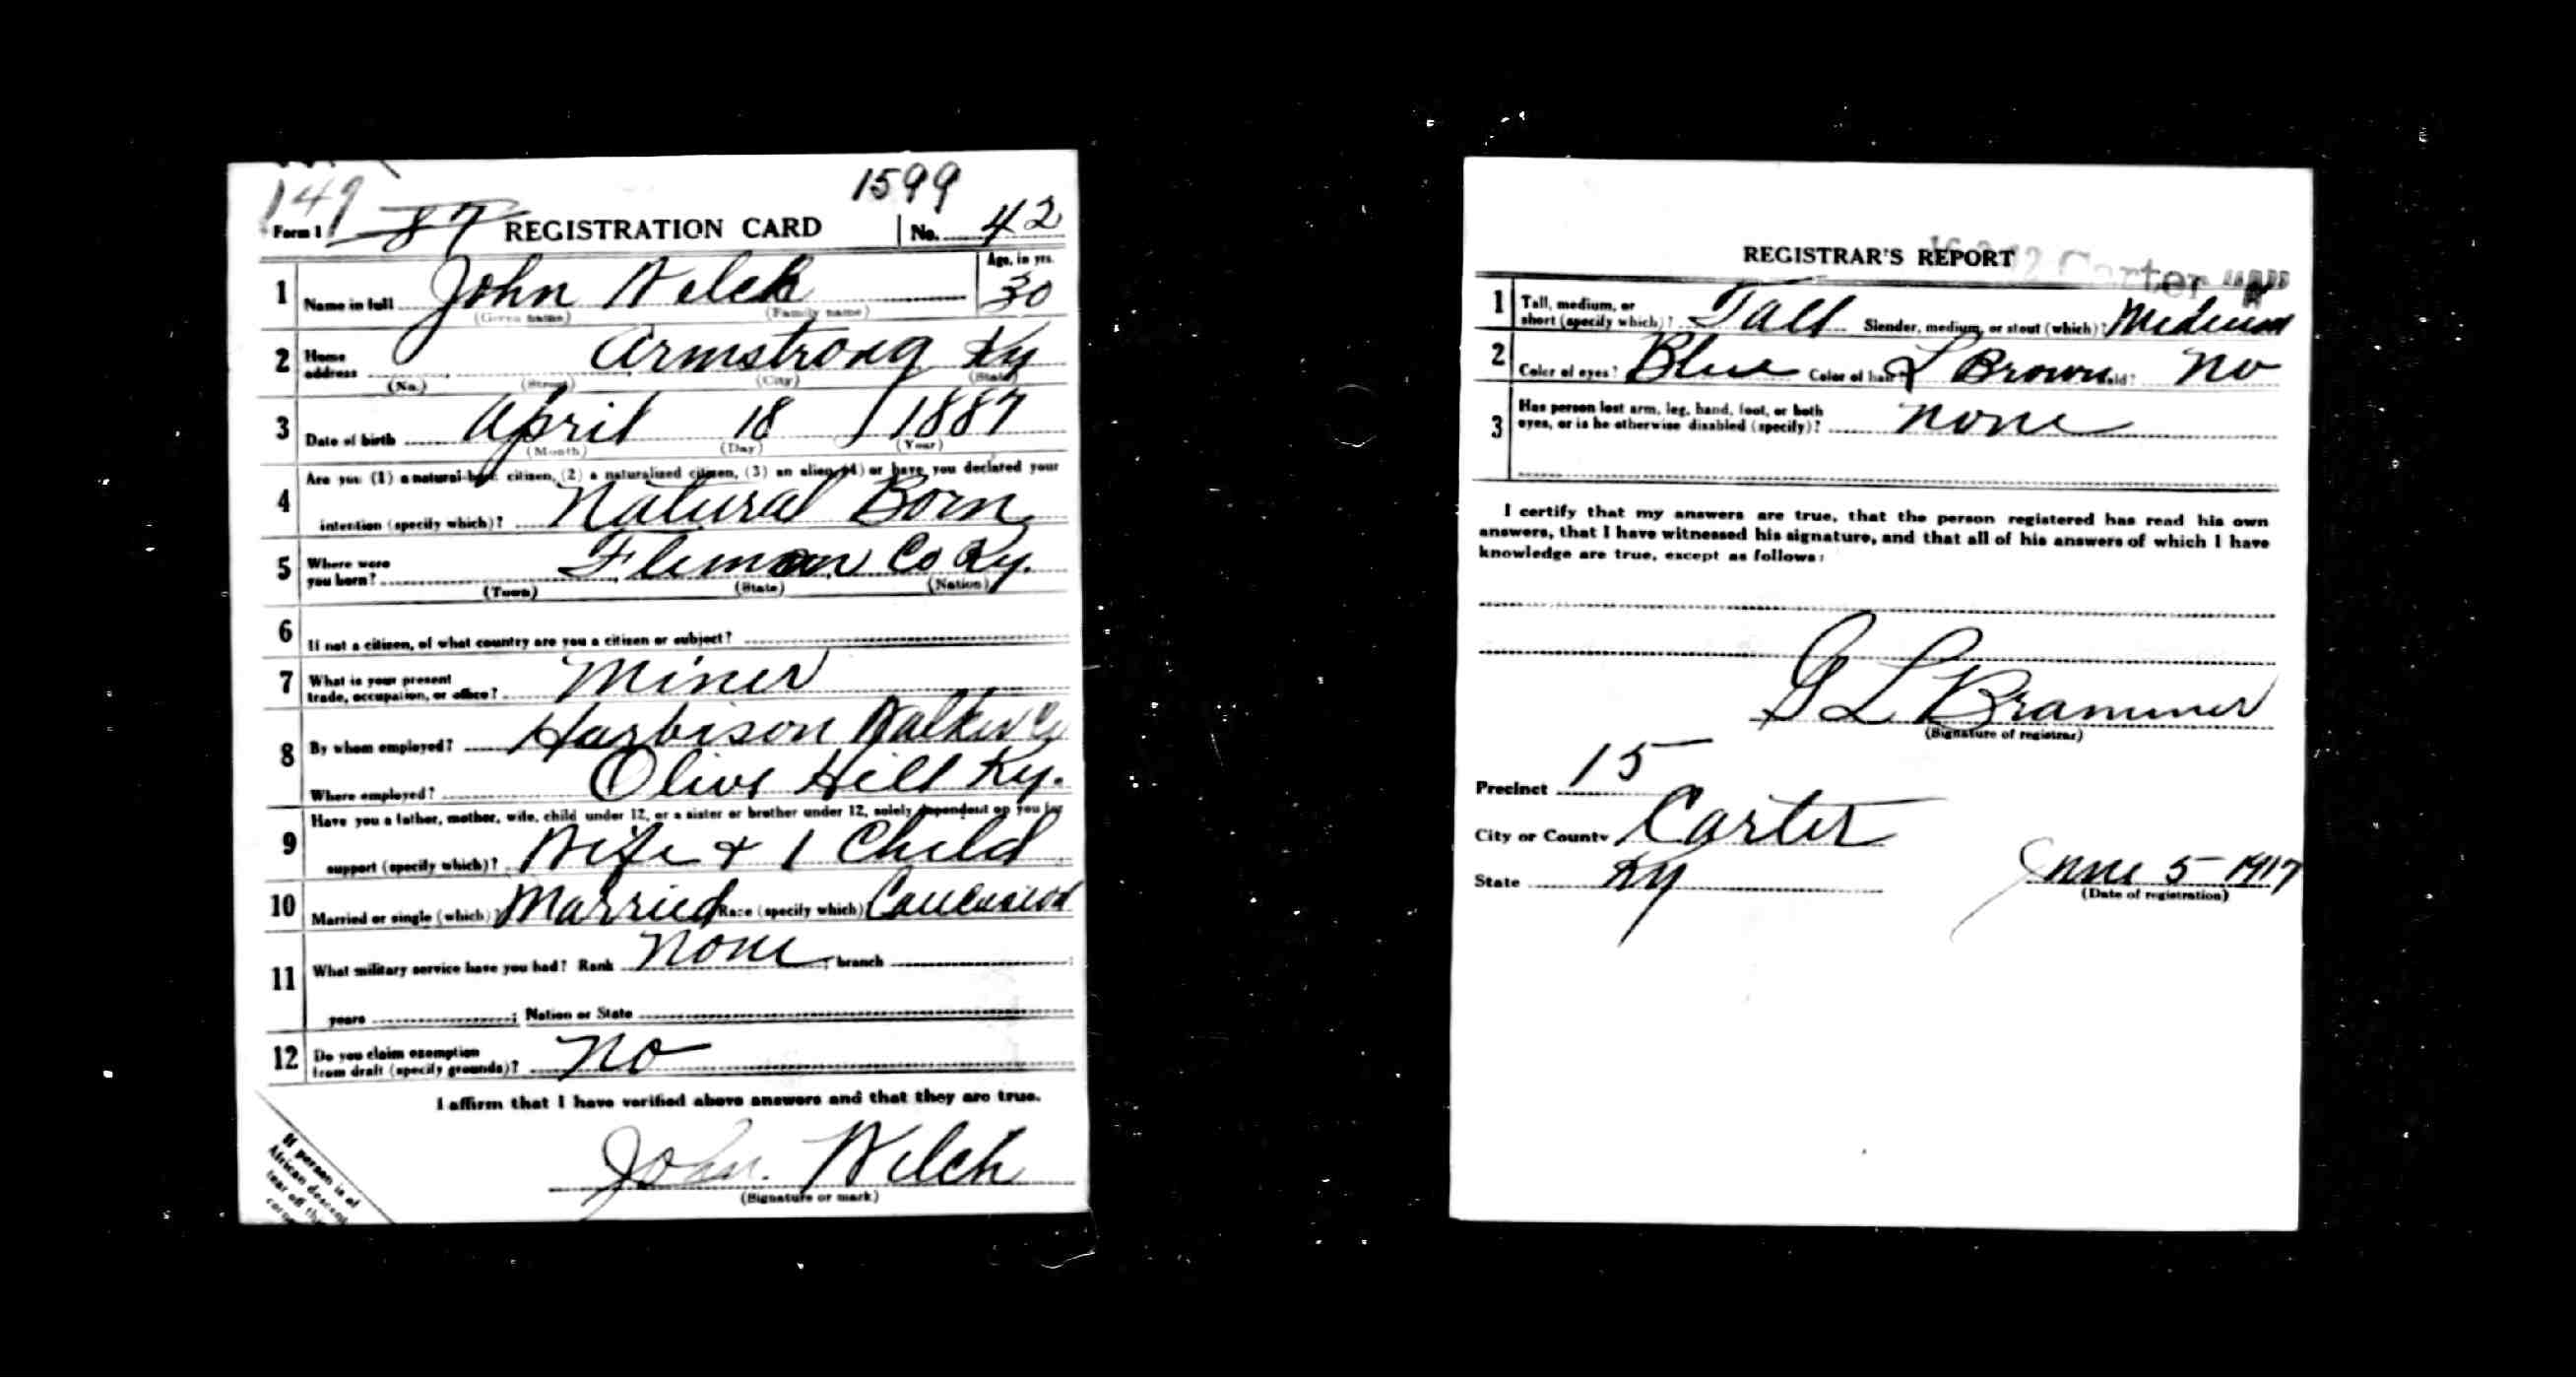 149
1599
Form 1 87 REGISTRATION CARD No. 42
1 Name in full John Welch Age, in yrs. 30
(Given name) (Family name)
2 Home address Armstrong Ky
(No.) (Street) (City) (State)
3 Date of birth April 18 1887
(Month) (Day) (Year)
4 Are you (1) a natural-born citizen, (2) a naturalized citizen, (3) an alien, (4) or have you declared your
intention (specify which)? Natural Born
5 Where were you born? Co Ky.
(Town) (State) (Nation)
6 If not a citizen, of what country are you a citizen or subject?
7 What is your present trade, occupation, or office? Miner
8 By whom employed? Harbison Walker Co
Where employed? Olive Hill Ky.
9 Have you a father, mother, wife, child under 12, or a sister or brother under 12, solely dependent on you for
support (specify which)? Wife + 1 Child
10 Married or single (which)? Married Race (specify which)? Caucasian
11 What military service have you had? Rank None ; branch ;
years ; Nation or State
12 Do you claim exemption from draft (specify grounds)? No
I affirm that I have verified above answers and that they are true.
John Welch
(Signature or mark)
If person is of
African descent,
tear off this
corner
REGISTRAR'S REPORT
Carter
1 Tall, medium, or short (specify which)? Tall Slender, medium, or stout (which)? Medium
2 Color of eyes? Blue Color of hair? L Brown Bald? No
3 Has person lost arm, leg, hand, foot, or both
eyes, or is he otherwise disabled (specify)? None
I certify that my answers are true, that the person registered has read his own
answers, that I have witnessed his signature, and that all of his answers of which I have
knowledge are true, except as follows:
G L Brammer
(Signature of registrar)
Precinct 15
City or County Carter
State Ky June 5 - 1917
(Date of registration)